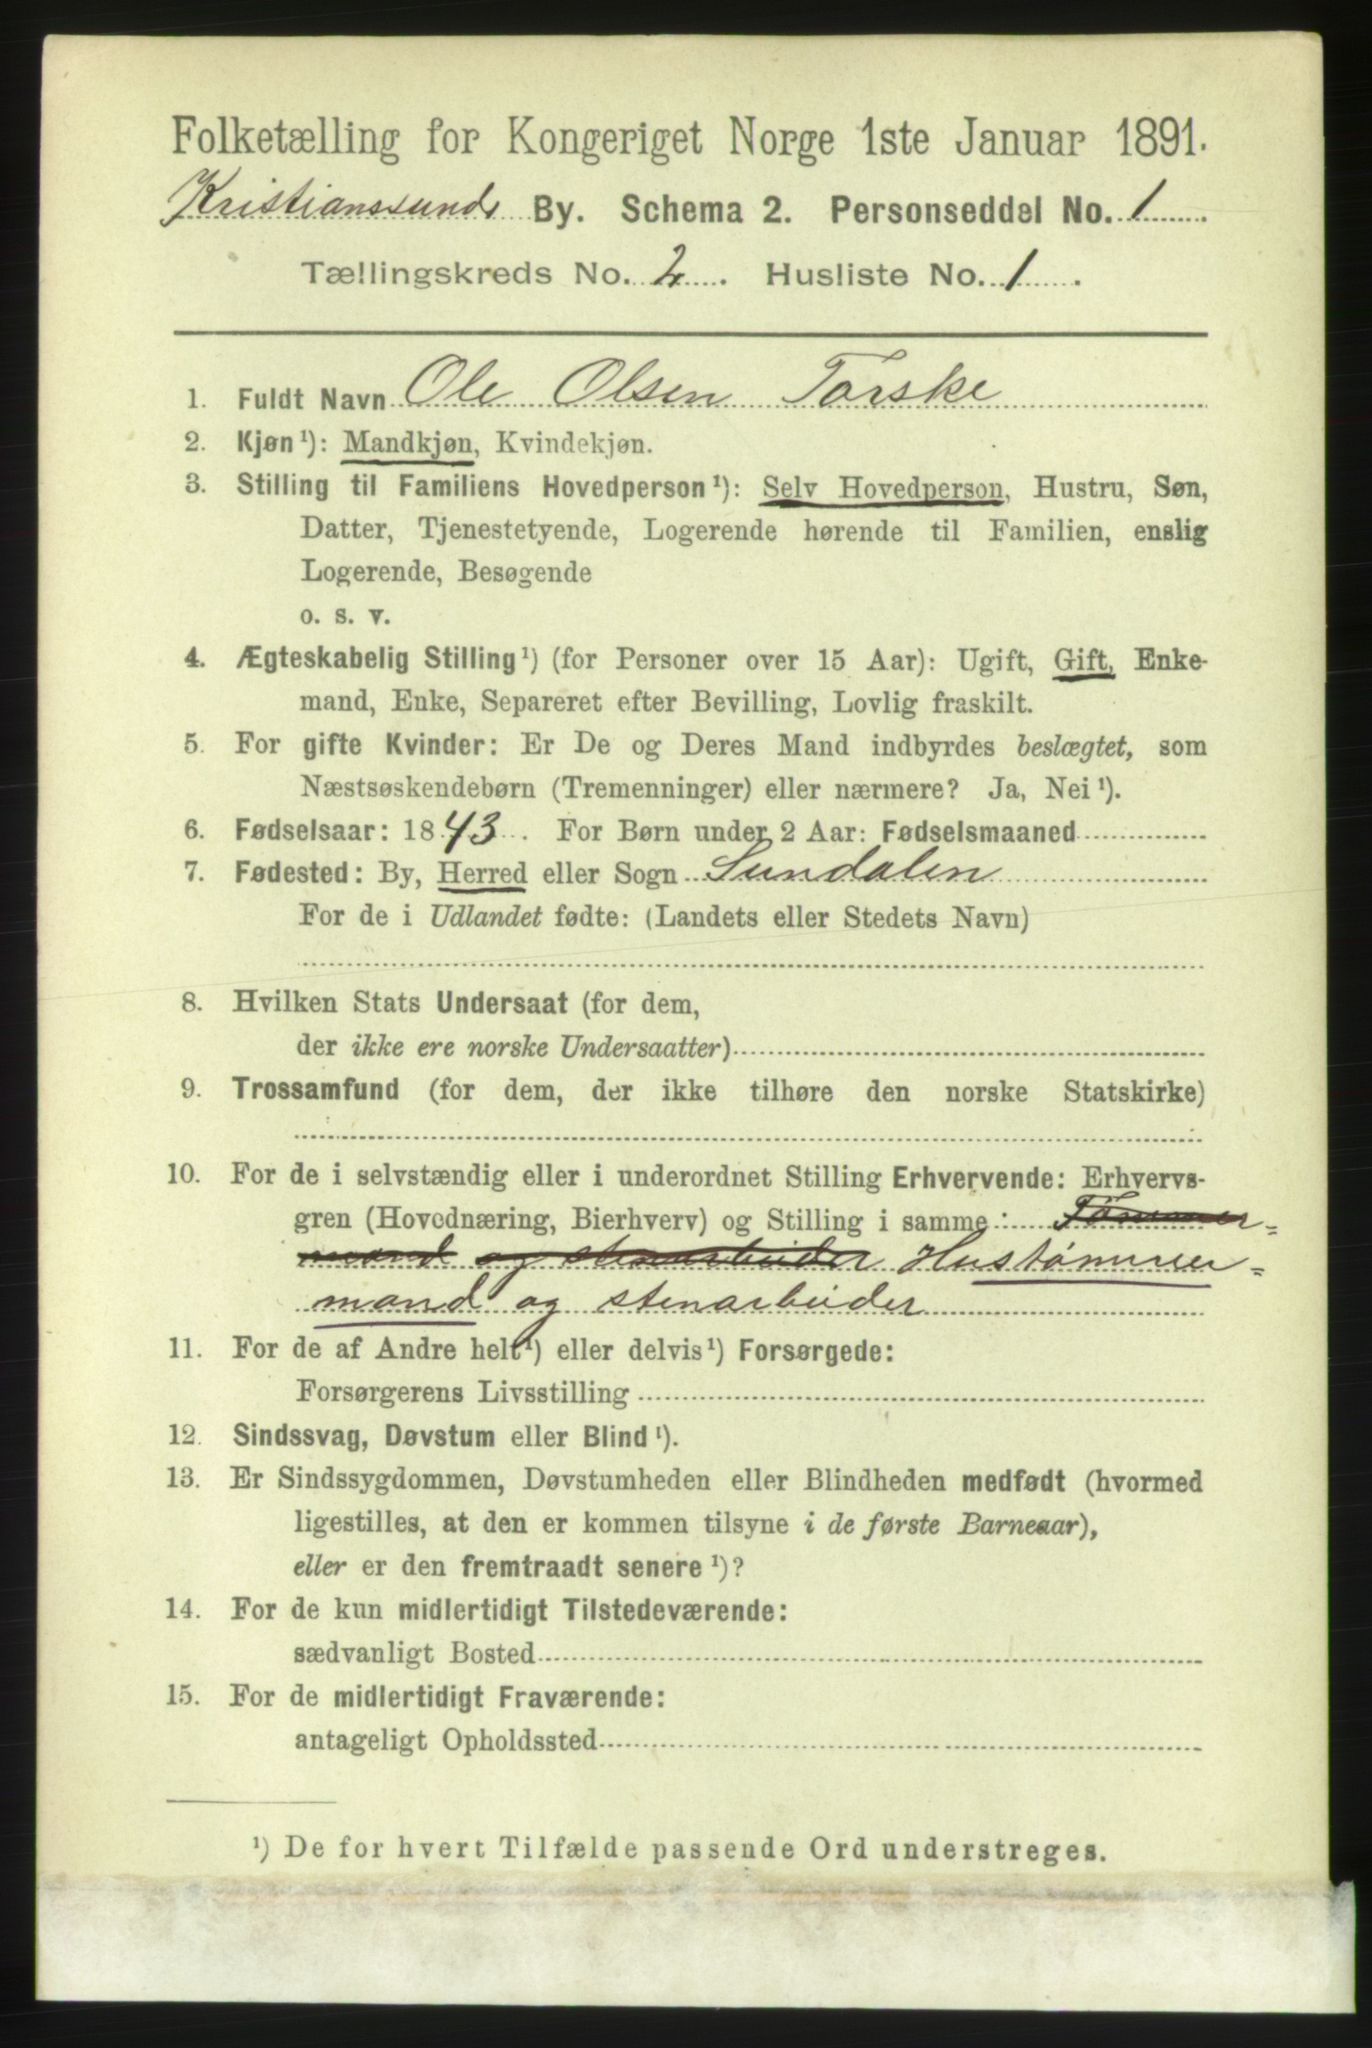 Folketælling for Kongeriget Norge 1ste Januar 1891.
Kristianssunds By. Schema 2. Personseddel No. 1
Tællingskreds No. 2. Husliste No. 1.
1. Fuldt Navn Ole Olsen Torske
2. Kjøn¹): Mandkjøn, Kvindekjøn.
3. Stilling til Familiens Hovedperson¹): Selv Hovedperson, Hustru, Søn,
Datter, Tjenestetyende, Logerende hørende til Familien, enslig
Logerende, Besøgende
o. s. v.
4. Ægteskabelig Stilling¹) (for Personer over 15 Aar): Ugift, Gift, Enke-
mand, Enke, Separeret efter Bevilling, Lovlig fraskilt.
5. For gifte Kvinder: Er De og Deres Mand indbyrdes beslægtet, som
Næstsøskendebørn (Tremenninger) eller nærmere? Ja, Nei¹).
6. Fødselsaar: 1843. For Børn under 2 Aar: Fødselsmaaned
7. Fødested: By, Herred eller Sogn Sundalen
For de i Udlandet fødte: (Landets eller Stedets Navn)
8. Hvilken Stats Undersaat (for dem,
der ikke ere norske Undersaatter)
9. Trossamfund (for dem, der ikke tilhøre den norske Statskirke)
10. For de i selvstændig eller i underordnet Stilling Erhvervende: Erhvervs-
gren (Hovednæring, Bierhverv) og Stilling i samme: Tømmer-
mand og stenarbeider Hustømmer-
mand og stenarbeider
11. For de af Andre helt¹) eller delvis¹) Forsørgede:
Forsørgerens Livsstilling
12. Sindssvag, Døvstum eller Blind¹).
13. Er Sindssygdommen, Døvstumheden eller Blindheden medfødt (hvormed
ligestilles, at den er kommen tilsyne i de første Barneaar),
eller er den fremtraadt senere¹)?
14. For de kun midlertidigt Tilstedeværende:
sædvanligt Bosted
15. For de midlertidigt Fraværende:
antageligt Opholdssted
¹) De for hvert Tilfælde passende Ord understreges.